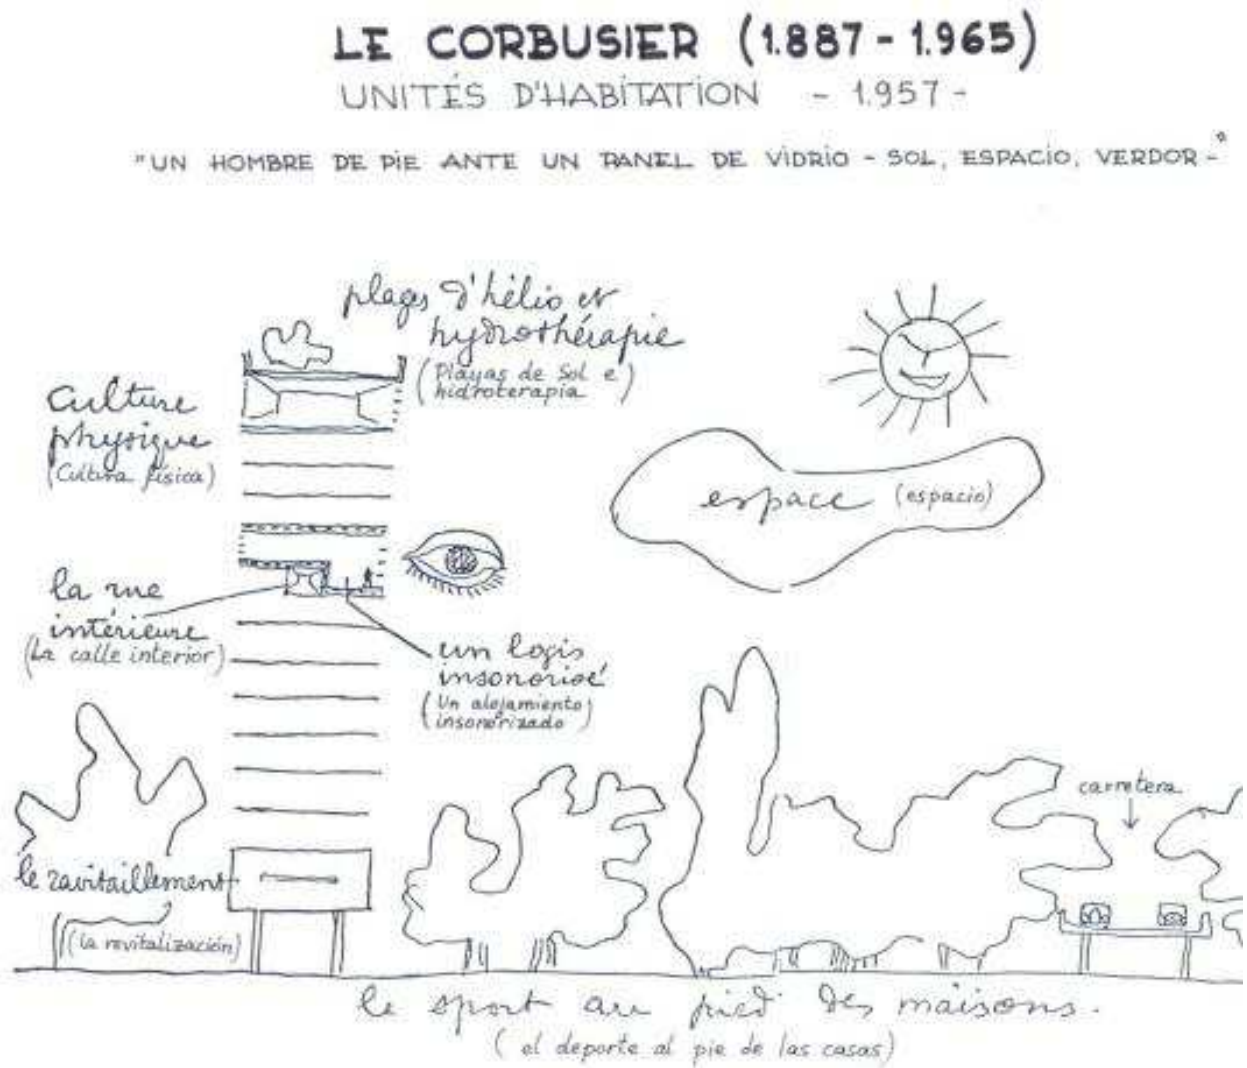 LE CORBUSIER (1.887 - 1.965)
UNITÉS D'HABITATION - 1.957 -
"UN HOMBRE DE PIE ANTE UN PANEL DE VIDRIO - SOL, ESPACIO, VERDOR -"
plages d'hélio et
hydrothérapie
(Playas de Sol e
hidroterapia)
Culture
physique
(Cultura física)
espace (espacio)
la rue
intérieure
(La calle interior)
un logis
insonorisé
(Un alojamiento
insonorizado)
carretera
le ravitaillement
(la revitalización)
le sport au pied des maisons.
(el deporte al pie de las casas)